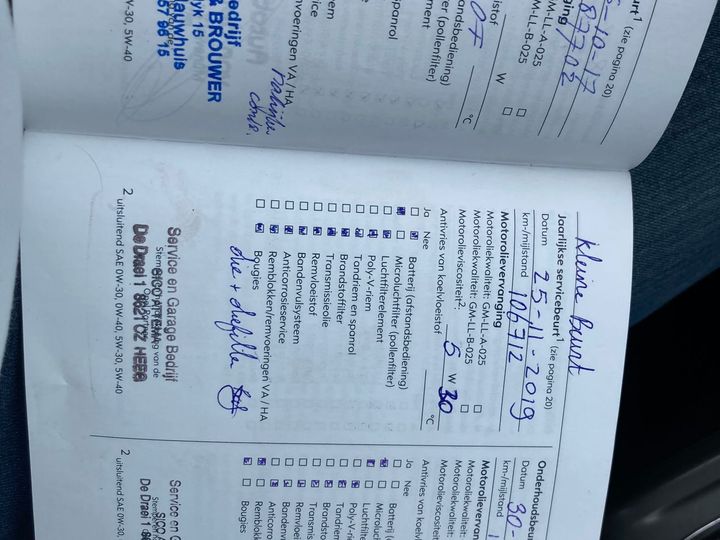 5-10-17
87702
beurt¹ (zie pagina 20)
GM-LL-A-025
GM-LL-B-025
W
°C
(afstandsbediening)
(pollenfilter)
spanrol
remvoeringen VA/HA
& BROUWER
Nauwhuis
5W-30, 5W-40
Kleine Beurt
Jaarlijkse servicebeurt¹ (zie pagina 20)
Datum 25-11-2019
km-/mijlstand 106712
Motorolievervanging
Motoroliekwaliteit: GM-LL-A-025
Motoroliekwaliteit: GM-LL-B-025
Motorolieviscositeit². 5 W 30
Antivries van koelvloeistof °C
Ja Nee
Batterij (afstandsbediening)
Microluchtfilter (pollenfilter)
Luchtfilterelement
Poly-V-riem
Tandriem en spanrol
Brandstoffilter
Transmissieolie
Remvloeistof
Bandenvulsysteem
Anticorrosieservice
Remblokken/remvoeringen VA/HA
Bougies
olie + oliefilter
Service en Garage Bedrijf
SICO ATTEMA
De Draei 1 8621 CZ HEEG
2 uitsluitend SAE 0W-30, 0W-40, 5W-30, 5W-40
Onderhoudsbeu
Datum 30-
km-/mijlstand
Motorolievervan
Motoroliekwaliteit:
Motoroliekwaliteit:
Motorolieviscositei
Antivries van koelv
Ja Nee
Batterij (
Microluch
Luchtfilte
Poly-V-ri
Tandriem
Brandsto
Transmis
Remvloei
Bandenv
Anticorro
Remblokk
Bougies
Service en G
SICO
De Draei 1 8
2 uitsluitend SAE 0W-30,